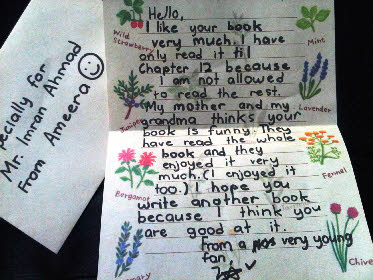 ecially for
Mr. Imran Ahmad
From Ameera
Hello,
I like your book
very much. I have
only read it til
Chapter 12 because
I am not allowed
to read the rest.
My mother and my
grandma thinks your
book is funny. They
have read the whole
book and they
enjoyed it very
much. (I enjoyed it
too.) I hope you
write another book
because I think you
are good at it.
from a very young
fan.
Wild
Strawberry
Mint
Juniper
Lavender
Bergamot
Fennel
mary
Chive